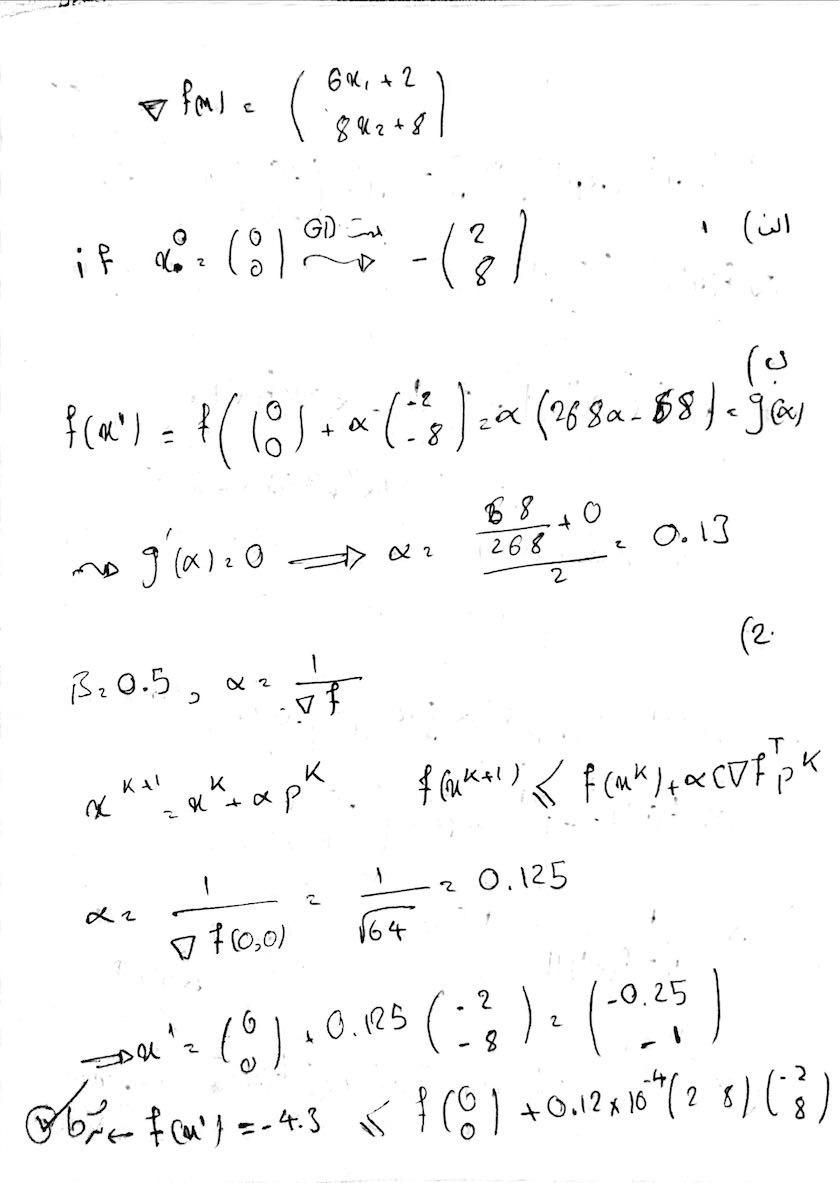 ∇ f(x) = ( 6x₁ + 2 / 8x₂ + 8 )
الف)
if x⁰ = ( 0 / 0 ) GD جهت ⟿ - ( 2 / 8 )
ب)
f(x¹) = f( ( 0 / 0 ) + α ( -2 / -8 ) ) = α (268α - 68) = g(α)
⟿ g'(α) = 0 ⟹ α = (68/268 + 0)/2 = 0.13
2)
β = 0.5 , α = 1/∇f
x^{K+1} = x^K + α p^K . f(x^{K+1}) ⩽ f(x^K) + α C ∇f^T p^K
α = 1/∇f(0,0) = 1/√64 = 0.125
⟹ x¹ = ( 0 / 0 ) + 0.125 ( -2 / -8 ) = ( -0.25 / -1 )
← f(x¹) = -4.3 ⩽ f( 0 / 0 ) + 0.12×10⁻⁴ (2 8) ( -2 / 8 )